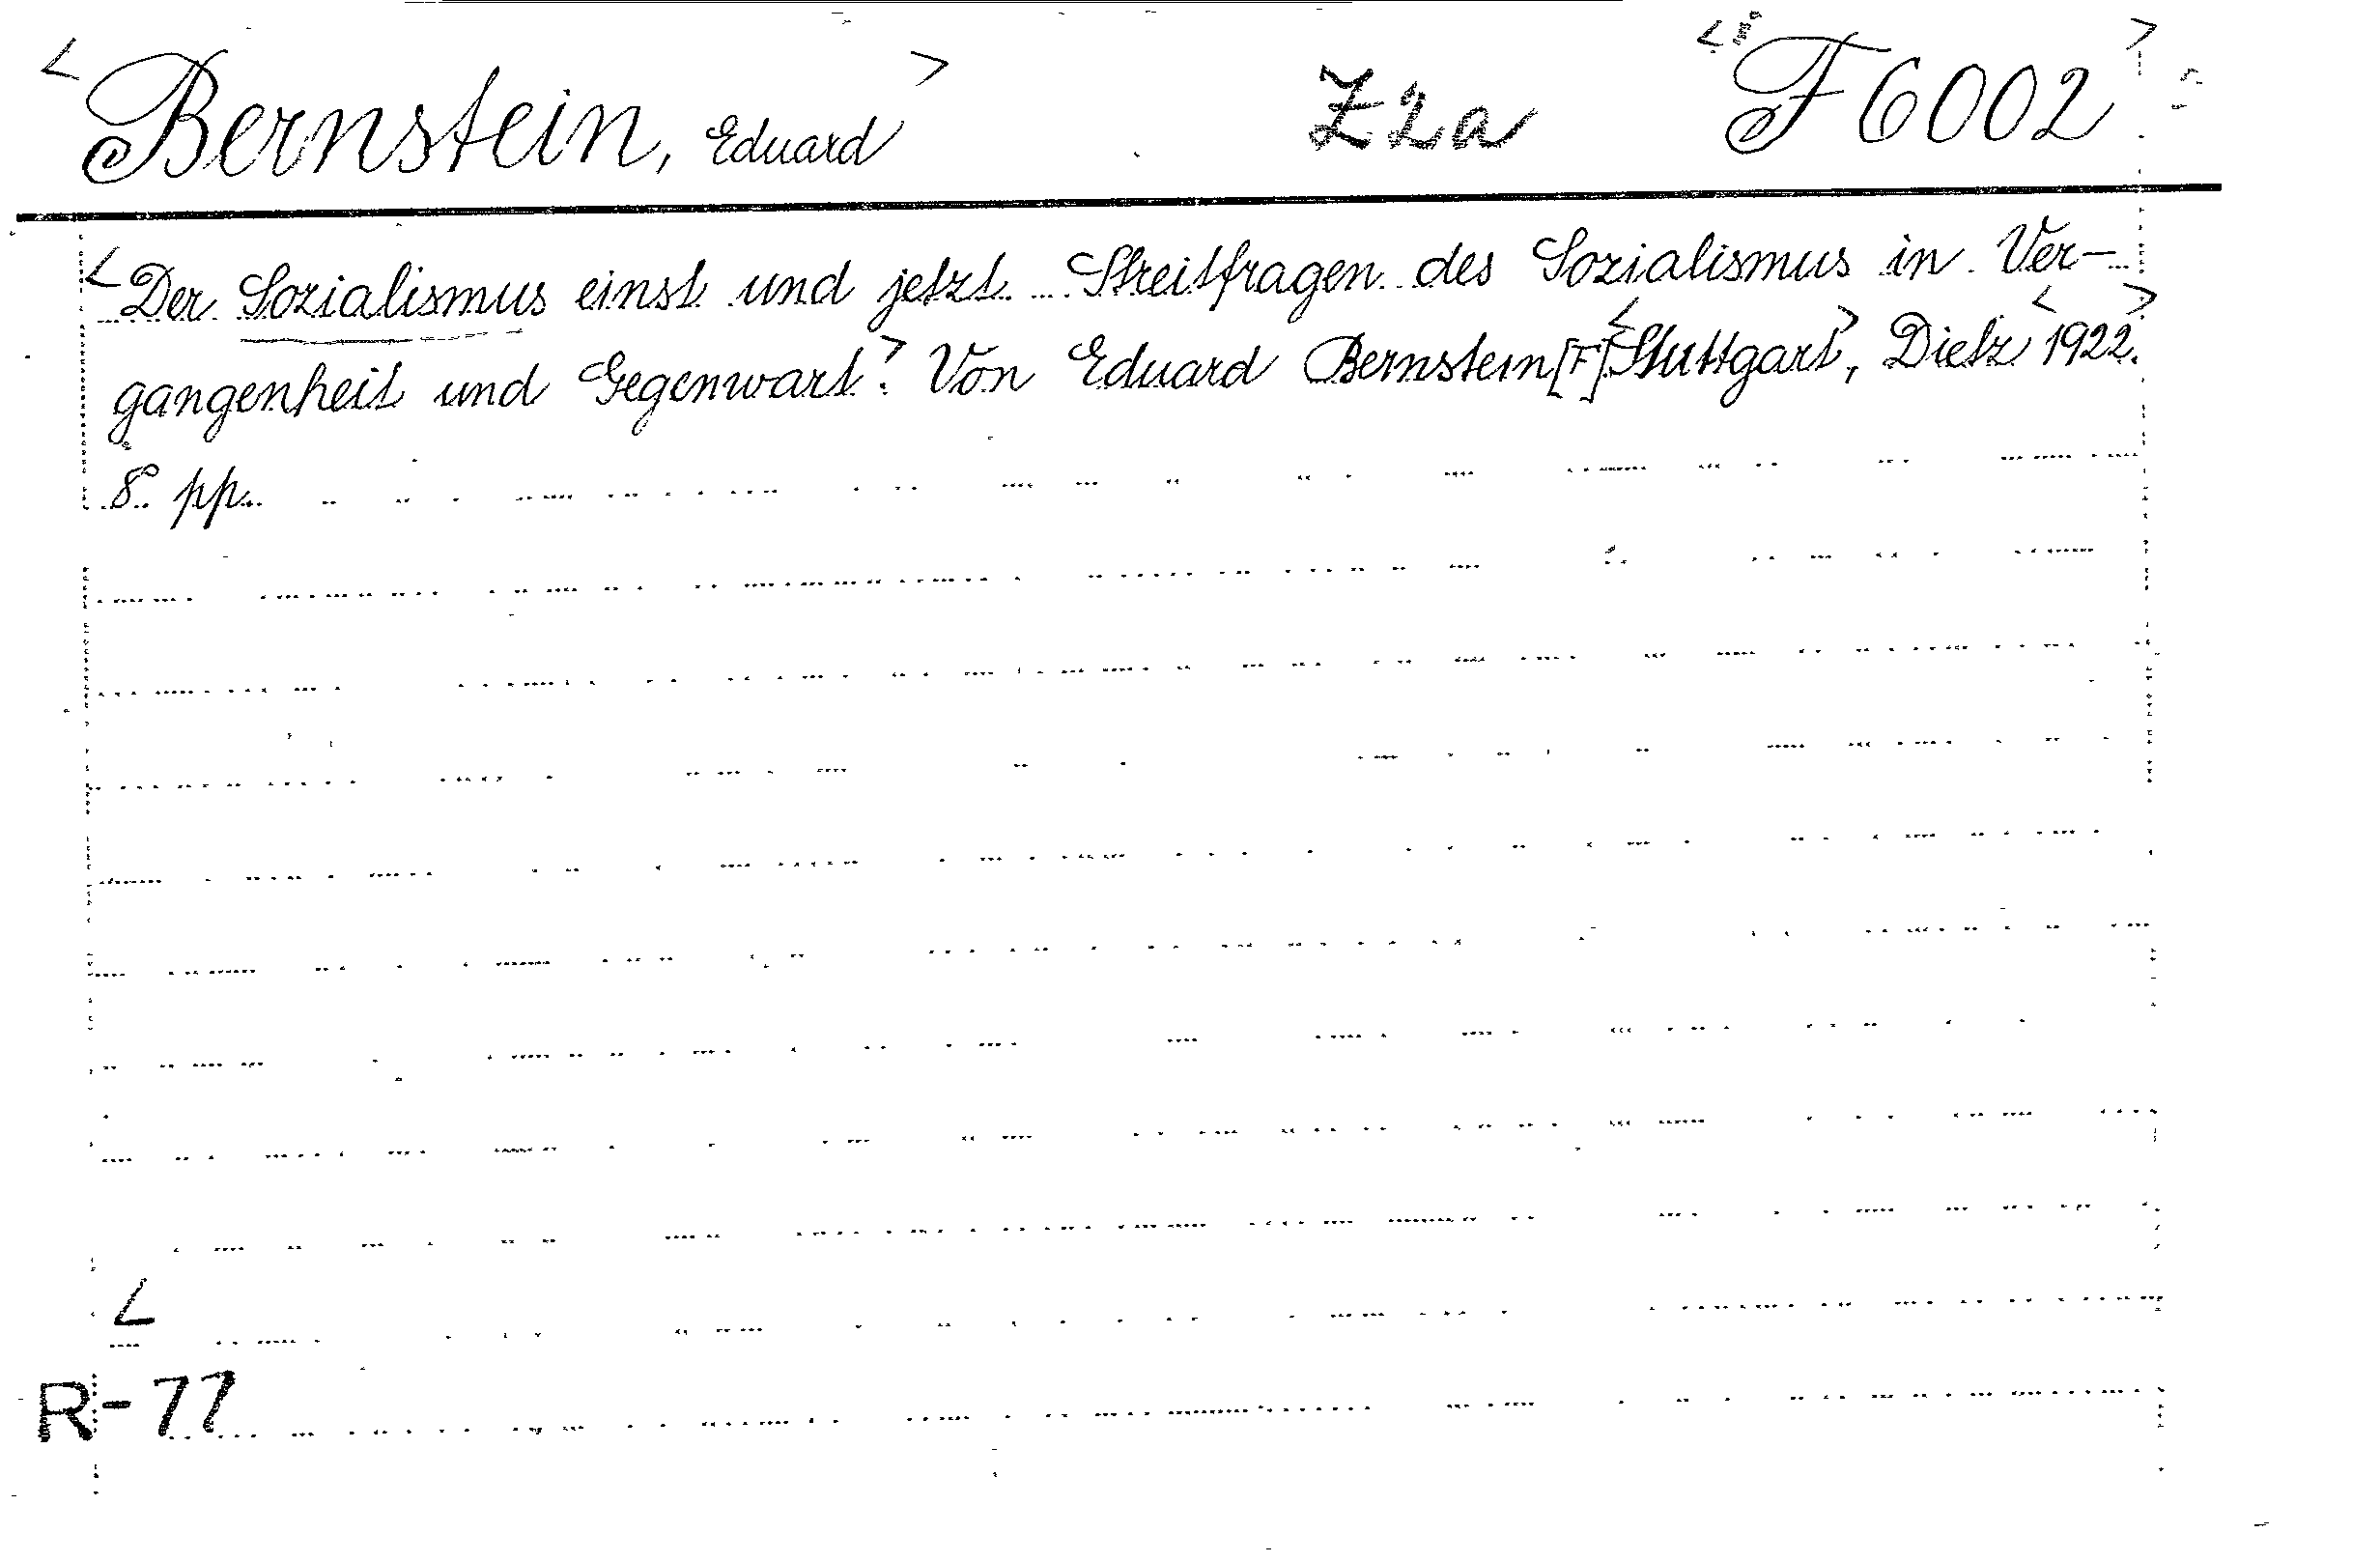 <Bernstein, Eduard> Z2a <F6002>
<Der Sozialismus einst und jetzt. Streitfragen des Sozialismus in Ver-
gangenheit und Gegenwart>. Von Eduard Bernstein[F]<Stuttgart>, Dietz <1922>.
8° pp.
<
R-77